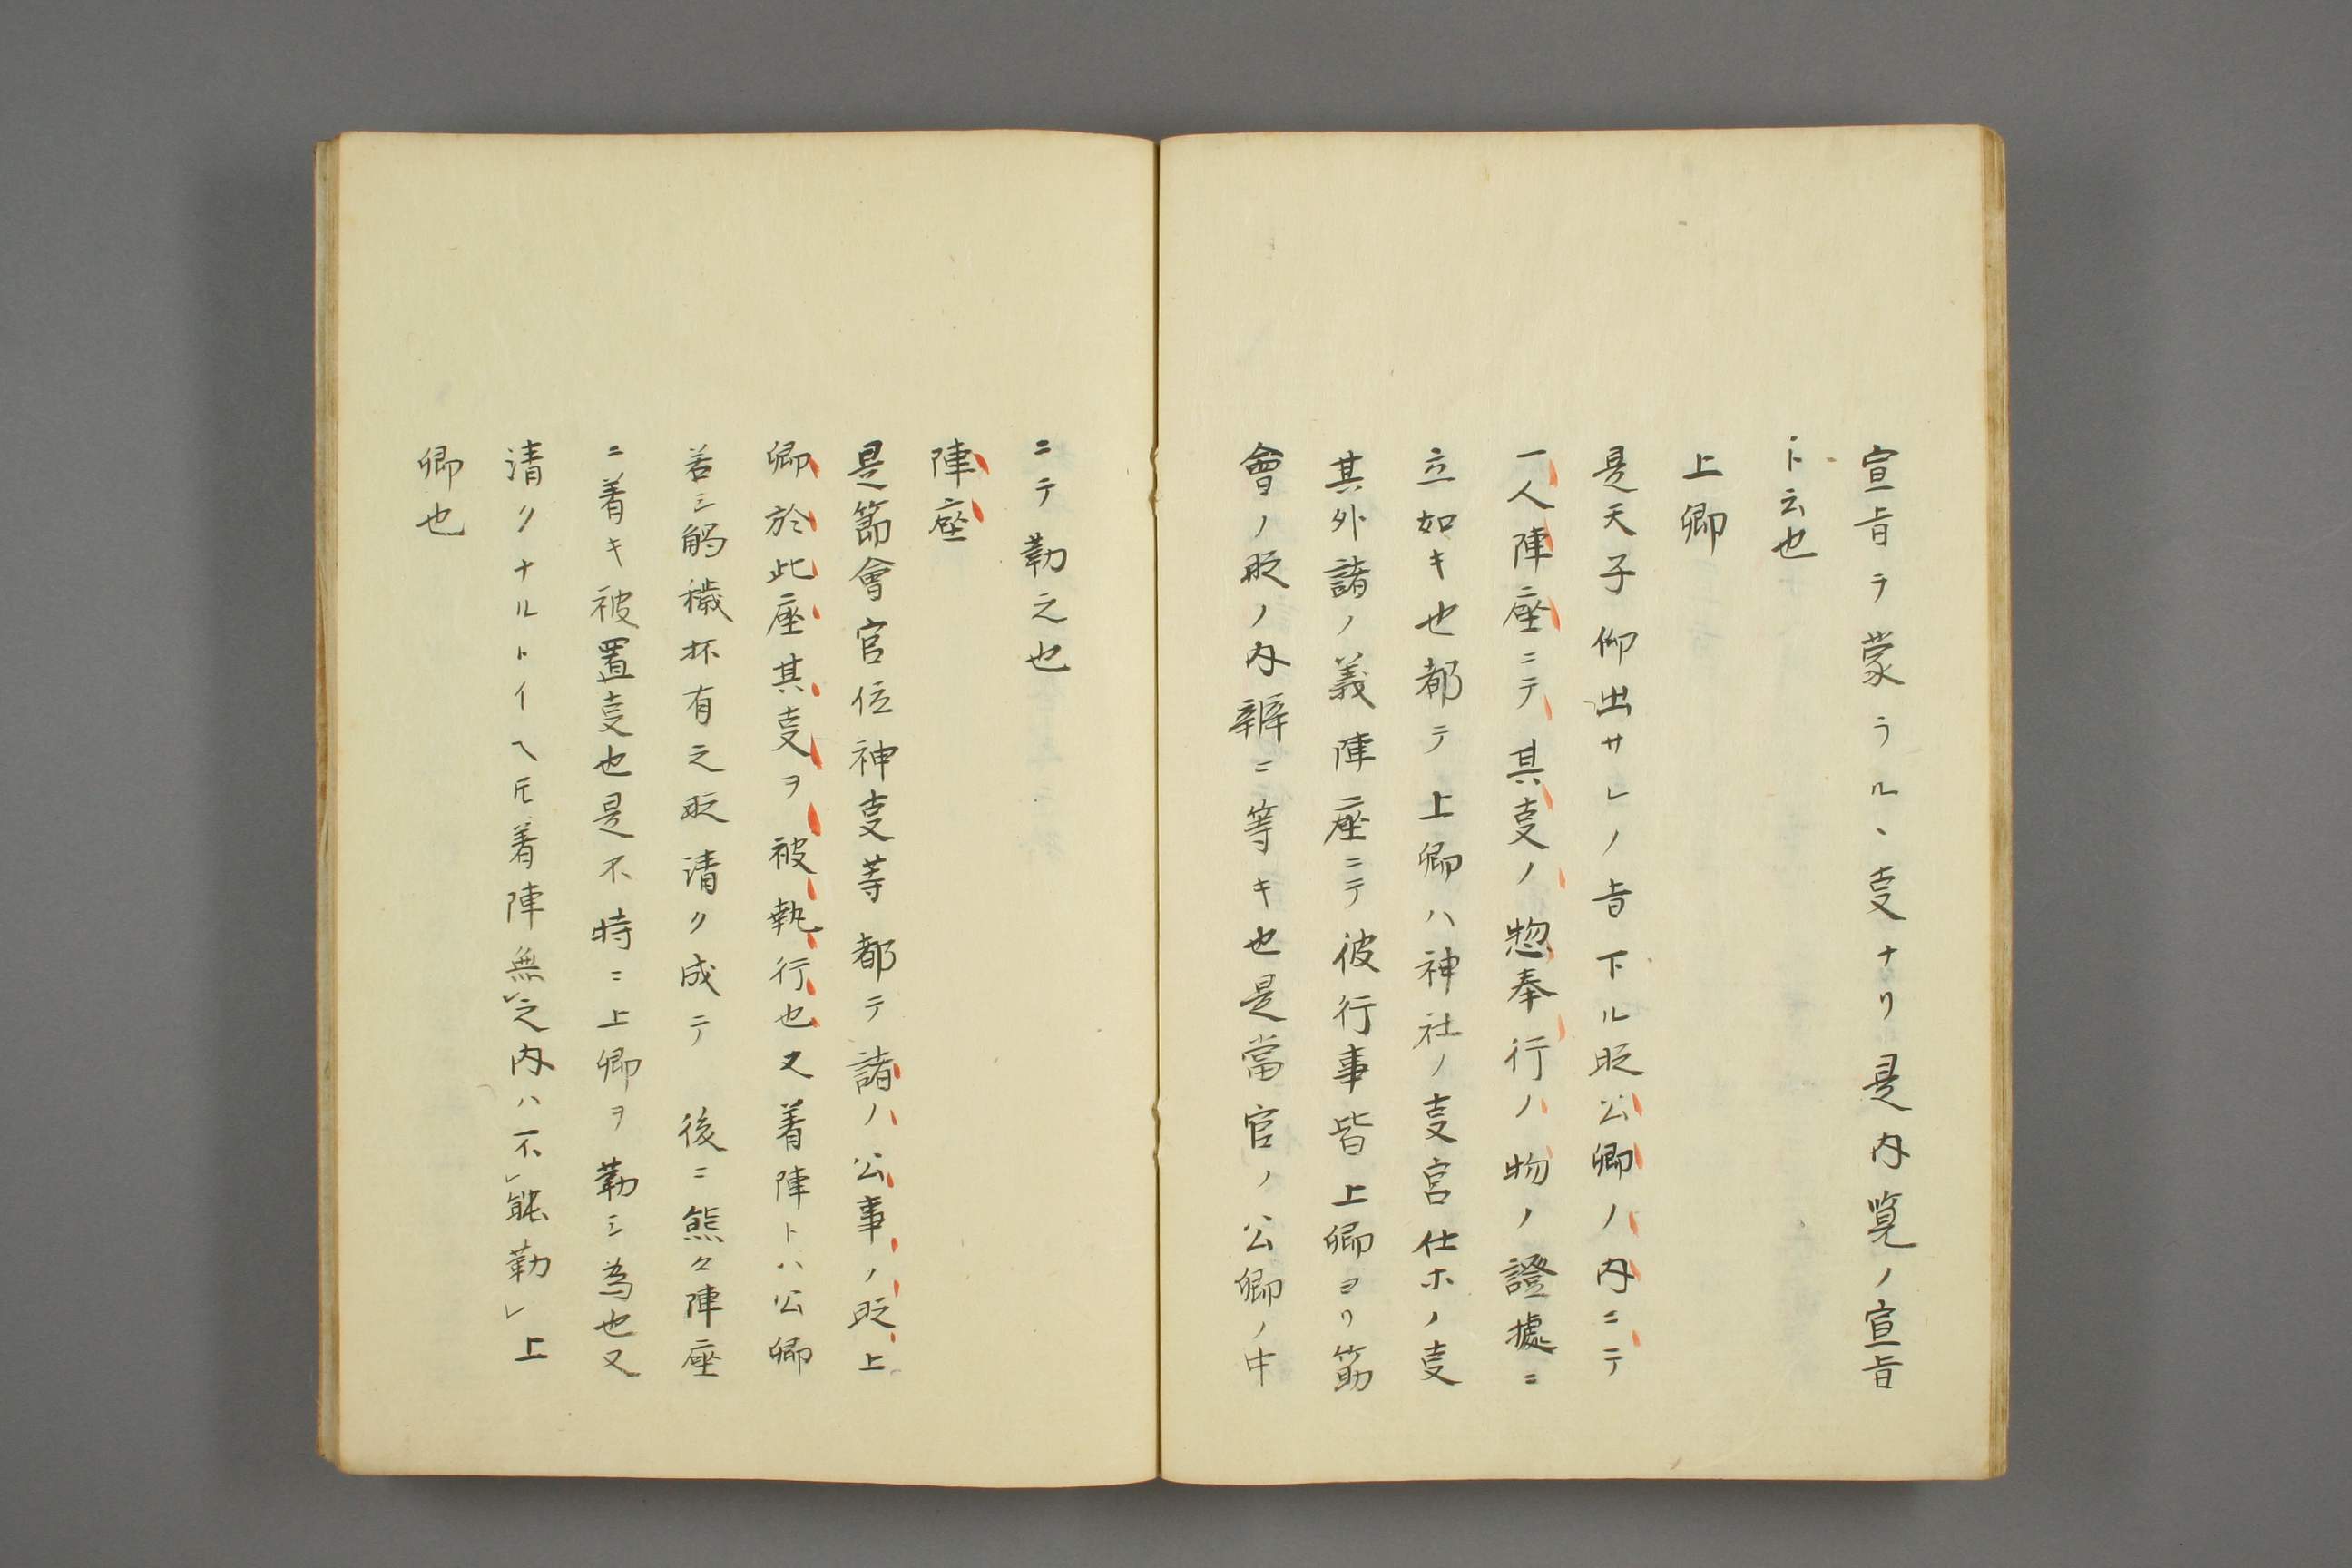 宣旨ヲ蒙ラル、叓ナリ是内覧ノ宣旨
ト云也
上卿
是天子仰出サレノ旨下ル时公卿ノ内ニテ
一人陣座ニテ其叓ノ惣奉行ノ物ノ證據ニ
立如キ也都テ上卿ハ神社ノ叓宮仕ホノ叓
其外諸ノ義陣座ニテ彼行事皆上卿ヨリ節
會ノ时ノ内辨ニ等キ也是當官ノ公卿ノ中
ニテ勤之也
陣座
是節會官位神叓等都テ諸ノ公事ノ时上
卿於此座其叓ヲ被執行也又着陣トハ公卿
若シ觸穢抔有之时清ク成テ後ニ態々陣座
ニ着キ被置叓也是不時ニ上卿ヲ勤ン為也又
清クナルトイヘ𪜈着陣無之内ハ不能勤上
卿也